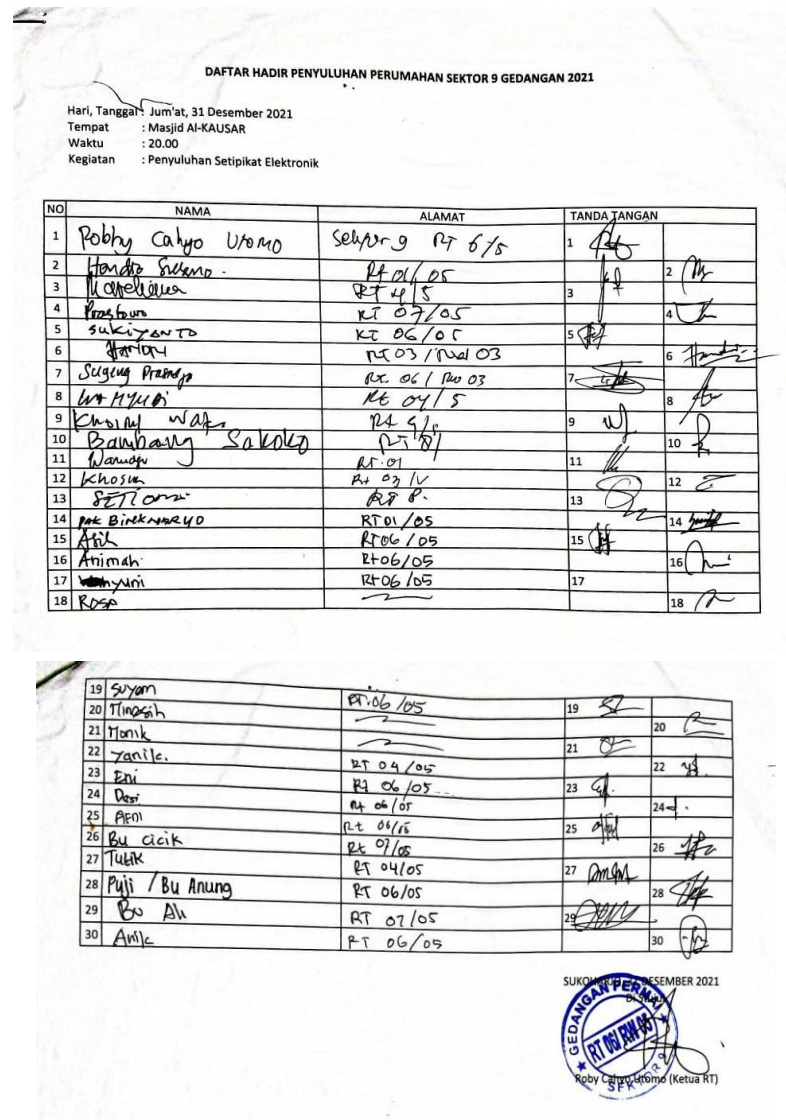 DAFTAR HADIR PENYULUHAN PERUMAHAN SEKTOR 9 GEDANGAN 2021
Hari, Tanggal : Jum'at, 31 Desember 2021
Tempat : Masjid Al-KAUSAR
Waktu : 20.00
Kegiatan : Penyuluhan Setipikat Elektronik
NO NAMA ALAMAT TANDA TANGAN
1 Robby Cahyo Utomo RT 6/5 1
2 Handro Rt 01/05 2
3 RT 4/5 3
4 RT 07/05 4
5 SUKIYANTO RT 06/05 5
6 HARION RT 03 / RW 03 6
7 Sugeng Rt. 06 / RW 03 7
8 WAHYUDI Rt 04/5 8
9 Khoirul Rt 9
10 Bambang RT 10
11 RT.01 11
12 Rt 03/V 12
13 RT 8. 13
14 PAK RT01/05 14
15 Asih RT06/05 15
16 Animah Rt06/05 16
17 Rt06/05 17
18 Rosa 18
19 Suyam RT.06/05 19
20 Minasih 20
21 Monik 21
22 Yanik. RT 04/05 22
23 Eni Rt 06/05 23
24 Desi Rt 06/05 24
25 AFNI Rt 06/05 25
26 Bu Cicik Rt 07/05 26
27 Tutik RT 04/05 27
28 Puji / Bu Anung RT 06/05 28
29 Bu RT 07/05 29
30 Anik RT 06/05 30
SUKOHARJO, DESEMBER 2021
GEDANGAN PERMAI
RT 06/ RW 05
SEKTOR 9
Roby Cahyo Utomo (Ketua RT)